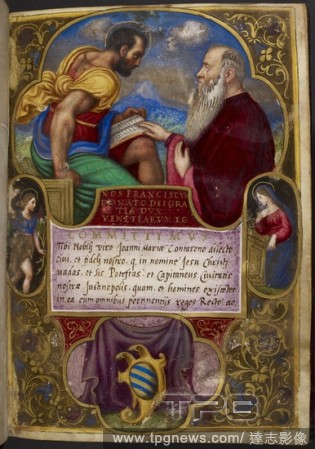 NOS FRANCISCV
DONATO DEI GRA
TIA DVX
VENETIARVM. ZC
COMMITTIMVS
Tibi Nobili viro Joanni Mariæ Contareno dilecto
ciui, et fideli nostro. q, in nomine Jesu Christi
uadas, et sis Potestas, et Capitaneus Ciuitatis
nostræ Justinopolis, quam, et homines existetes
in ea cum omnibus pertinentijs reges
TPG
www.tpgnews.com/ 達志影像